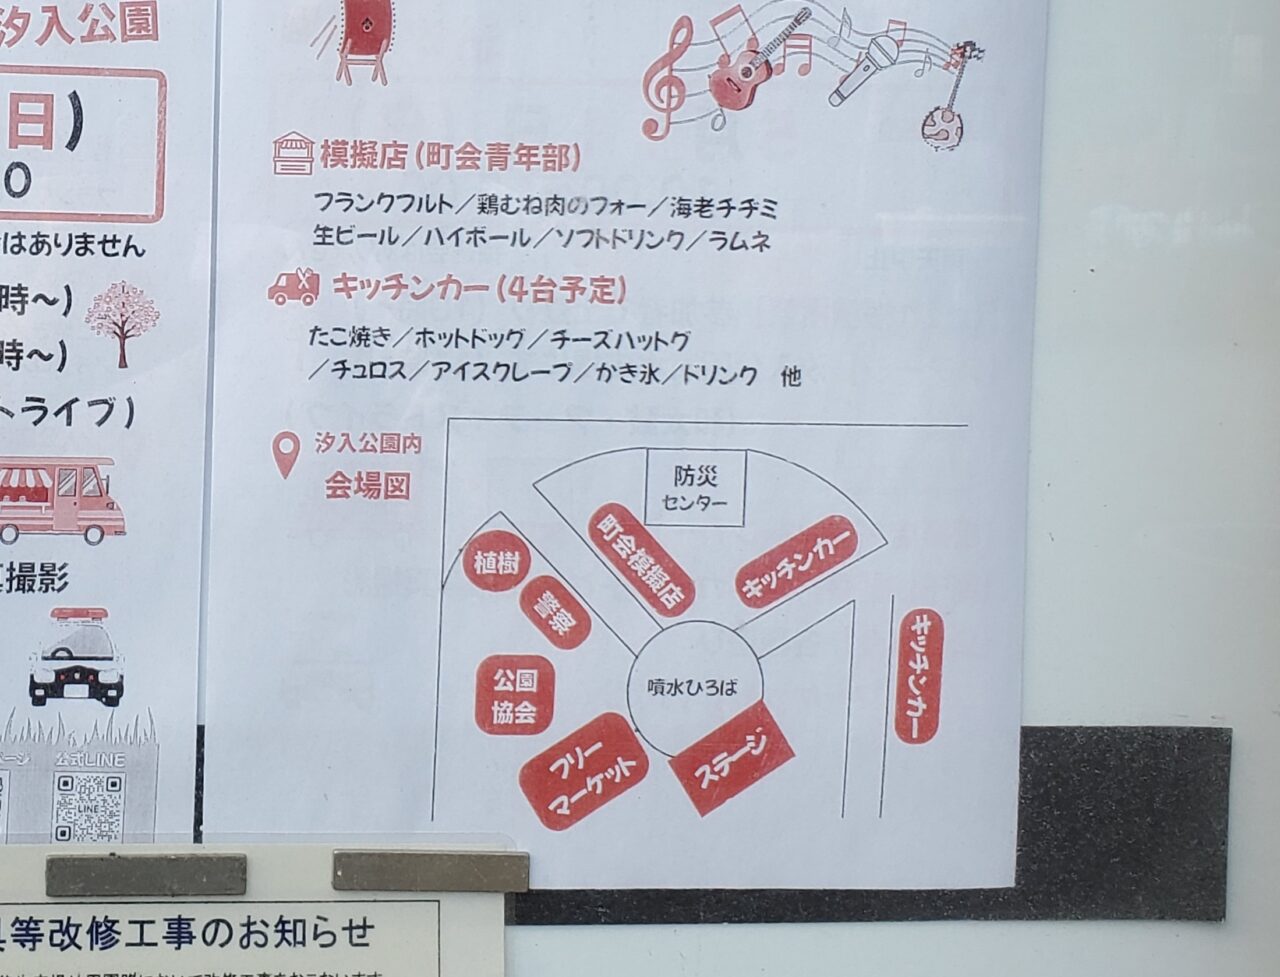 汐入公園
日)
0
はありません
時～)
時～)
トライブ)
撮影
ページ
公式LINE
LINE
模擬店(町会青年部)
フランクフルト／鶏むね肉のフォー／海老チヂミ
生ビール／ハイボール／ソフトドリンク／ラムネ
キッチンカー(4台予定)
たこ焼き／ホットドッグ／チーズハットグ
／チュロス／アイスクレープ／かき氷／ドリンク　他
汐入公園内
会場図
防災
センター
町会模擬店
キッチンカー
植樹
警察
キッチンカー
公園
協会
噴水ひろば
フリー
マーケット
ステージ
等改修工事のお知らせ